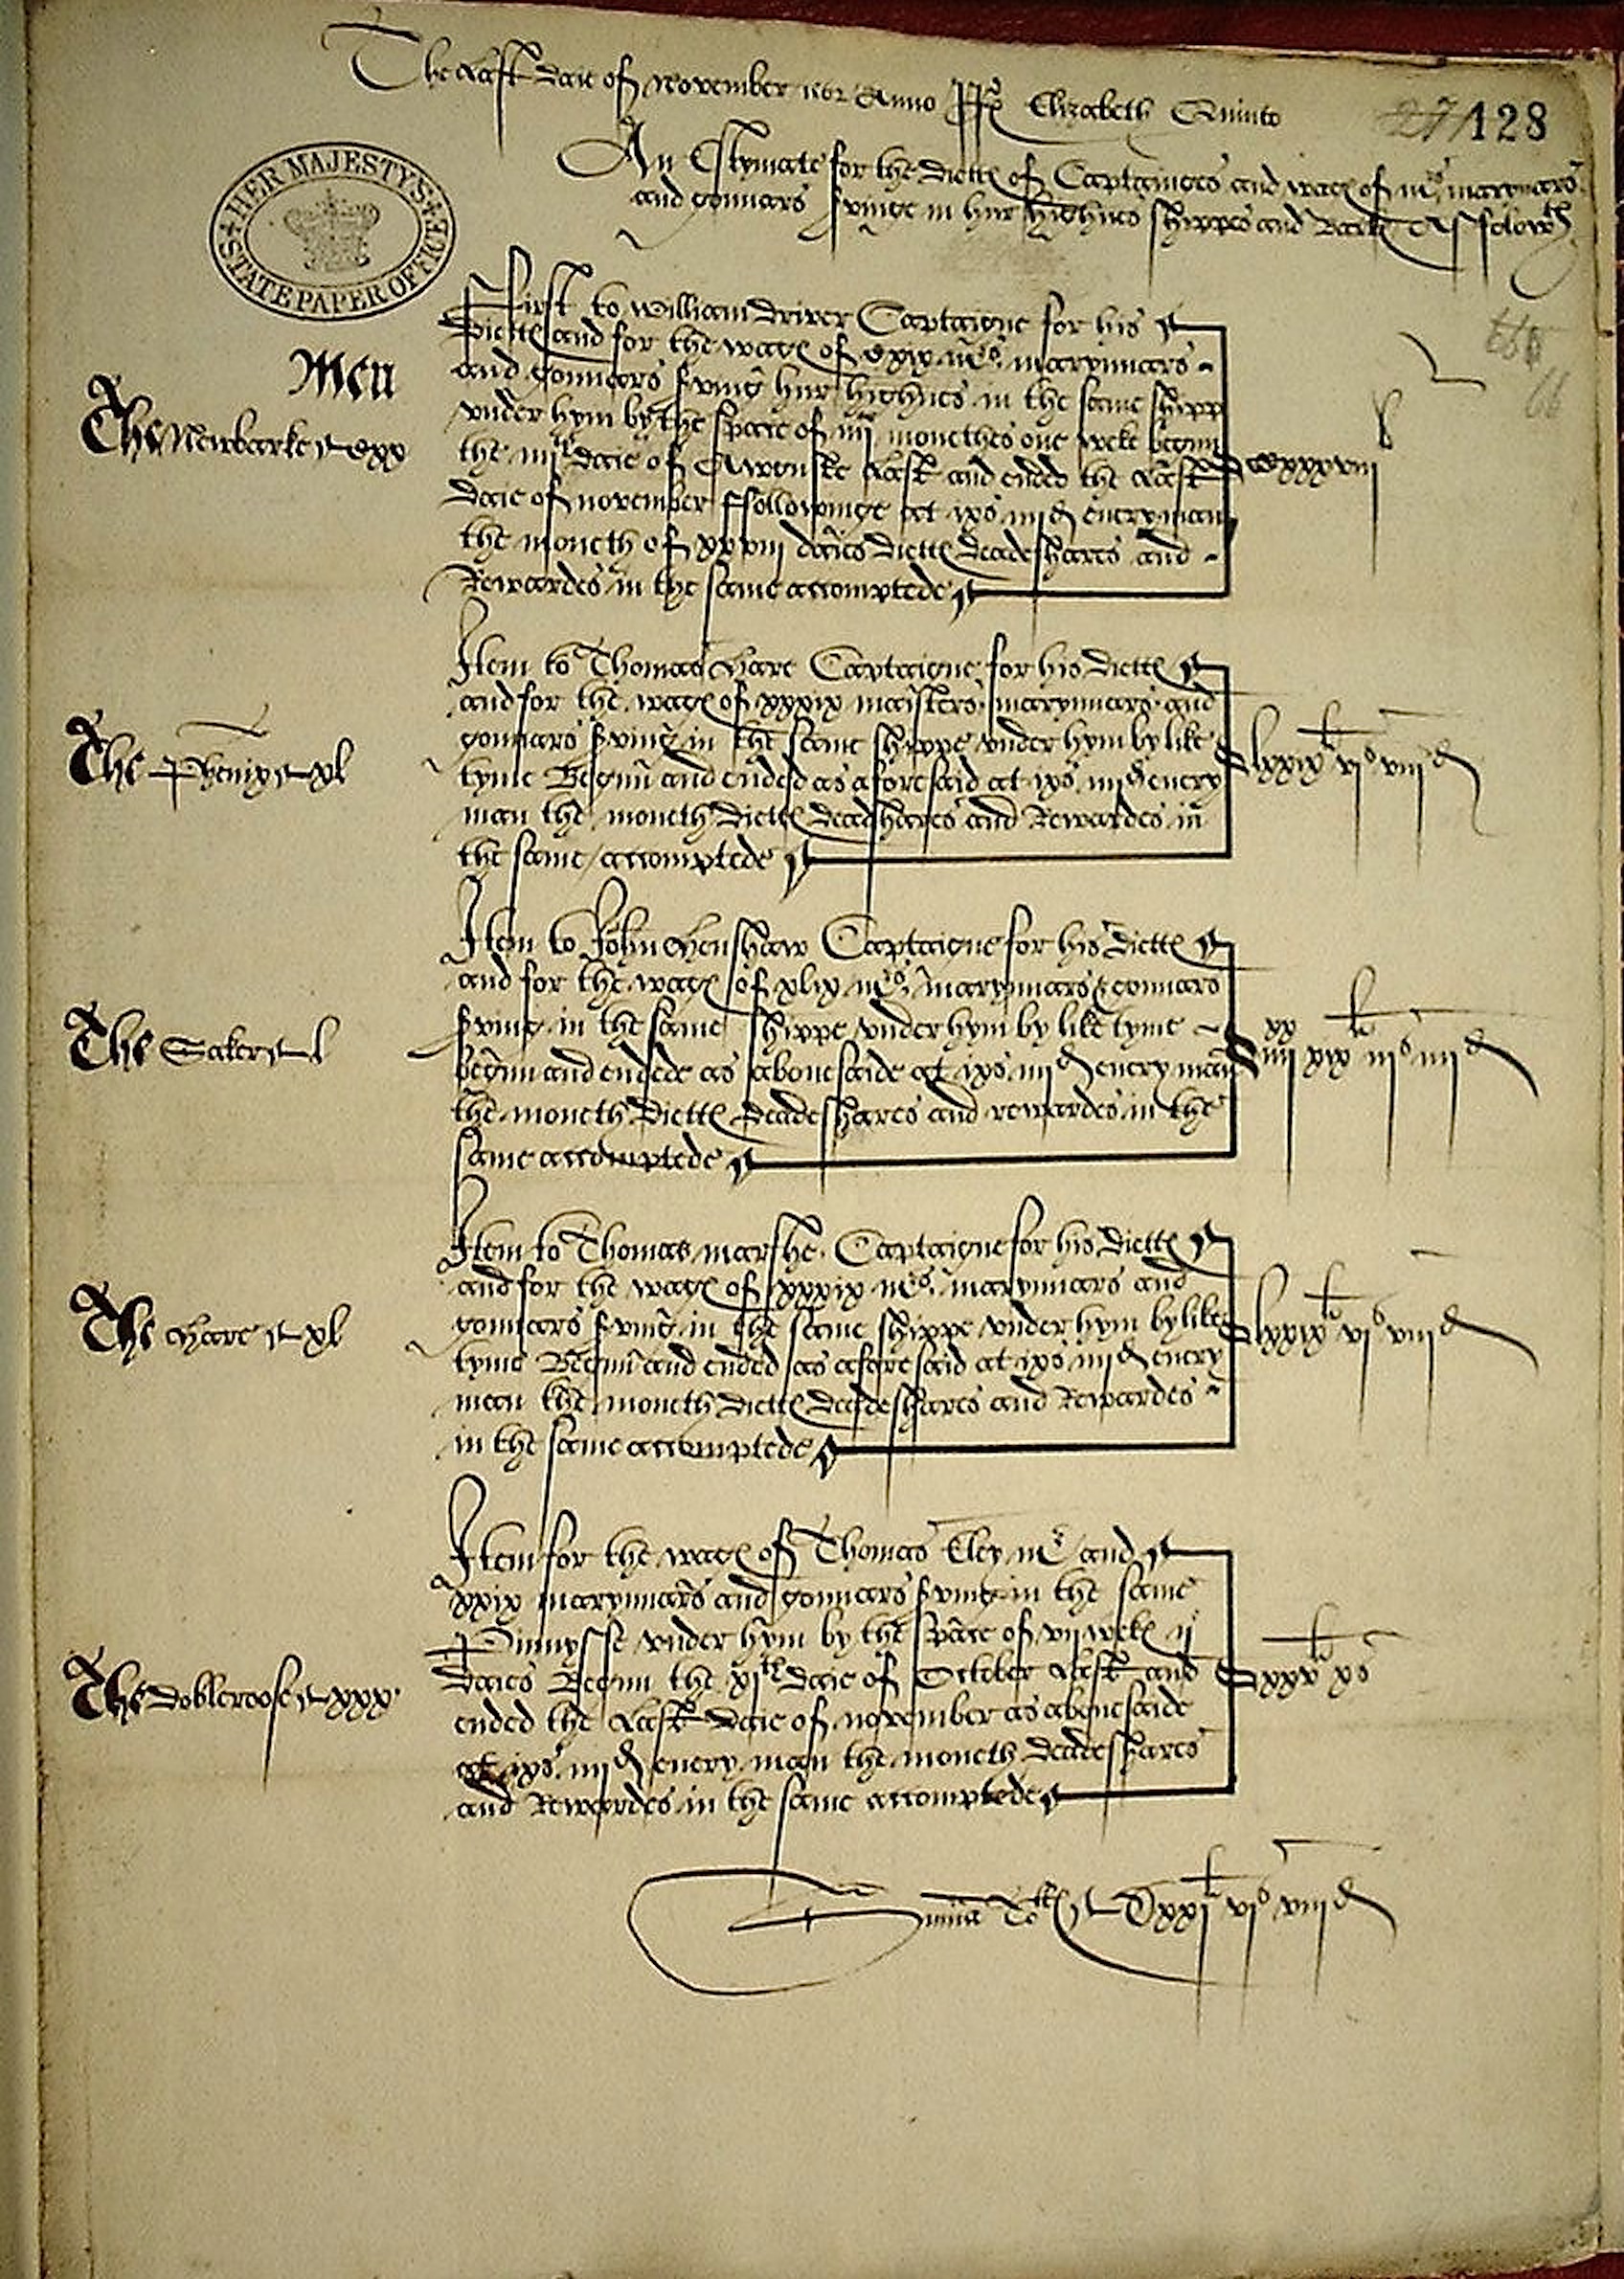 The Last Daie of November 1562 Anno RRe Elizabeth Quinto
27 128
An Estymate for the Dietts of Captaignes and wages of mrs marynars
and gonnars svinge in hur highnes shippes and Barks As foloweth
HER MAJESTY'S
STATE PAPER OFFICE
66
Men
The Newbarke cxx
First to William Driver Captaigne for his
Dietts and for the wages of cxix mrs marynnars
and gonnars sving hur highnes in the same shipp
under hym by the space of iiii monethes one weke begonn
the iiiith daie of Awguste Last and ended the Last
Daie of november ffollowinge at ixs iiiid euery man
the moneth of xxviii daies Dietts Deadeshares and
Rewardes in the same accomptede
ccxxxviii li
The Phenix xl
Item to Thomas Hare Captaigne for his Dietts
and for the wages of xxxix maisters marynnars and
gonnars sving in the same shippe under hym by like
tyme Begonn and ended as aforesaid at ixs iiiid euery
man the moneth Dietts Deadshares and Rewardes in
the same accomptede
lxxix li vis viiid
The Saker l
Item to John Henshaw Captaigne for his Dietts
and for the wages of xlix mrs marynnars & gonnars
sving in the same shippe under hym by like tyme
begonn and endede as abouesaide at ixs iiiid euery man
the moneth Dietts Deadeshares and rewardes in the
same accomptede
iiiixx xix li iiis iiiid
The Hare xl
Item to Thomas marshe Captaigne for his Dietts
and for the wages of xxxix mrs marynnars and
gonnars sving in the same shippe under hym by like
tyme Begonn and ended as aforesaid at ixs iiiid euery
man the moneth Dietts Deadeshares and Rewardes
in the same accomptede
lxxix li vis viiid
The Dobleroose xxx
Item for the wages of Thomas Eley mr and
xxix marynnars and gonnars sving in the same
Pinnysse under hym by the space of vii weks ii
Daies Begonn the xith daie of October Last and
ended the Last Daie of november as abouesaide
at ixs iiiid euery man the moneth Deadeshares
and Rewardes in the same accomptede
xxv li xs
Summa Totlis Dxxi li vis viiid